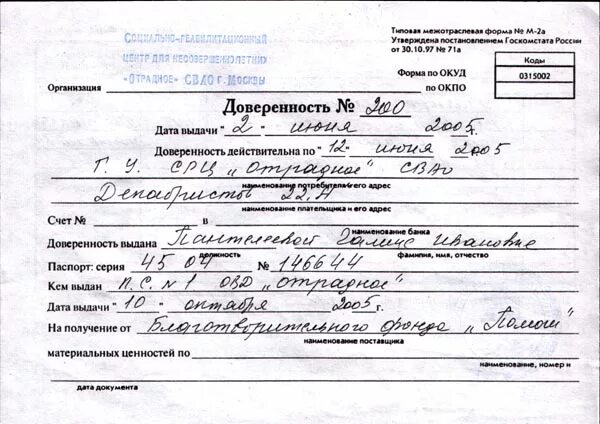 Типовая межотраслевая форма № М-2а
Утверждена постановлением Госкомстата России
от 30.10.97 № 71а
Социально-реабилитационный
центр для несовершеннолетних
"Отрадное" СВАО г. Москвы
Коды
Форма по ОКУД 0315002
Организация по ОКПО
Доверенность № 200
Дата выдачи "2" июня 2005г.
Доверенность действительна по "12" июня 2005
Г. У. СРЦ "Отрадное" СВАО
наименование потребителя и его адрес
Декабристов 22, А
наименование плательщика и его адрес
Счет № в
наименование банка
Доверенность выдана Пантелеевой Галине Ивановне
должность фамилия, имя, отчество
Паспорт: серия 45 04 № 146644
Кем выдан П.С. № 1 ОВД "Отрадное"
Дата выдачи "10" октября 2005г.
На получение от Благотворительного фонда "Помощи"
наименование поставщика
материальных ценностей по
наименование, номер и
дата документа